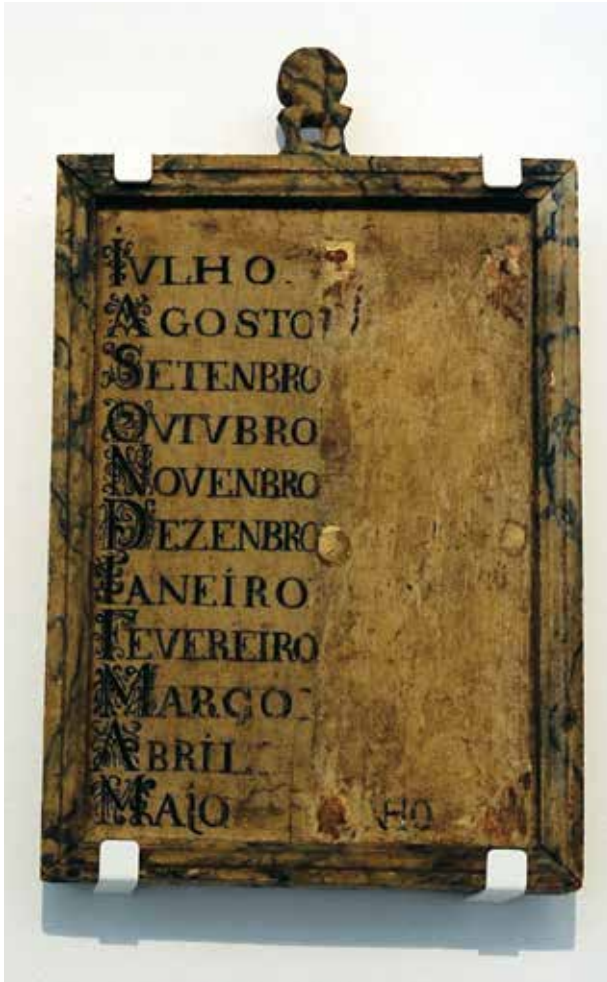 IVLHO
AGOSTO
SETENBRO
OVTVBRO
NOVENBRO
DEZENBRO
IANEÍRO
FEVEREIRO
MARÇO
ABRÍL
MAIO HO